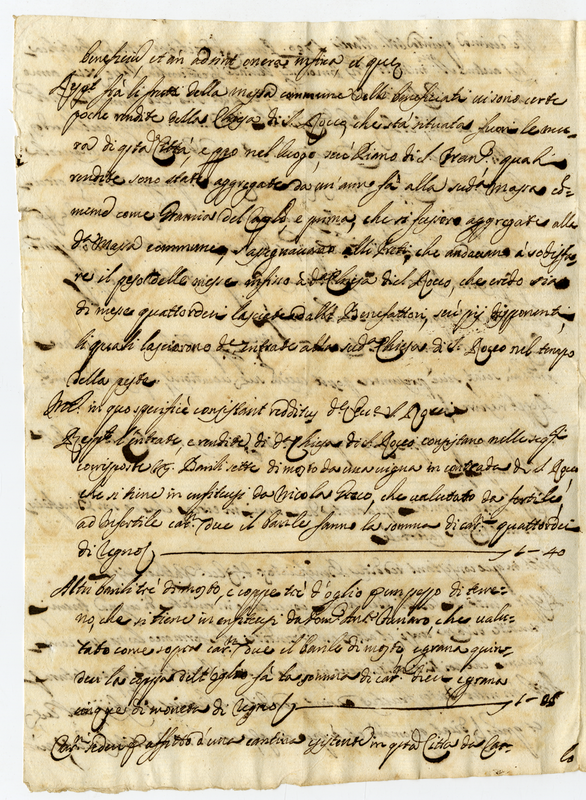 beneficij et an adsint onera infixa, et que
Resp.t frà li frutti della massa commune delli beneficiati vi sono certe
poche rendite della Chiesa di S. Rocco, che stà situata fuori le mu-
ra di q.sta Città, e p.p.o nel luogo, seù piano di S. Fran.o quali
rendite sono state aggregate da un'anno fà alla sud.a Massa com-
mune come
e prima, che si fussero aggregate alla
d.a Massa commune, s'assegnavano alli Preti, che andavano à sodisfa-
re il peso delle messe infisso à d.a Chiesa di S. Rocco, che credo sia
di messe quattordeci lasciate dalli Benefattori, seù pij disponenti
li quali lasciorono d.e intrate alla sud.a Chiesa di S. Rocco nel tempo
della peste
in quo specificè consistant redditus d.e Ecc.e S. Rocci
Resp.t l'intrate, e rendite di d.a Chiesa di S. Rocco consistano nelle seg.ti
corrisposte Barili sette di mosto da una vigna in contrada di S. Rocco
che si tiene in enfiteusi da Nicola Greco, che valutato da fertile
ad infertile car.ni due il barile fanno la somma di car.ni quattordeci
di Regno / 1 - 40
Altri barili trè di mosto, e coppe trè d'oglio p un pezzo di terre-
no, che si tiene in enfiteusi da Dom.co Ant.o che valu-
tato come sopra car.ni due il barile di mosto e grana quin-
deci la coppa dell'oglio fà la somma di car.ni dieci e grana
cinque di moneta di Regno / 1 - 05
Car.ni sedeci p affitto d'una cantina esistente in q.sta Città da Car-
lo